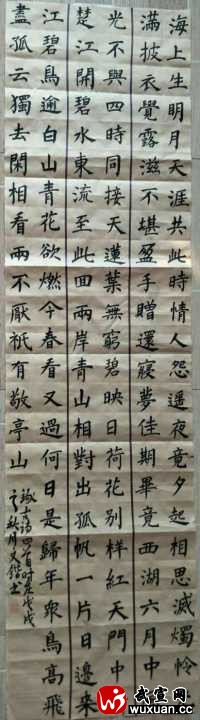 海上生明月天涯共此時情人怨遥夜竟夕起相思滅燭怜
滿披衣覺露滋不堪盈手贈還寢夢佳期畢竟西湖六月中
光不與四時同接天蓮葉無窮碧映日荷花别樣紅天門中
楚江開碧水東流至此回兩岸青山相對出孤帆一片日邊来
江碧鳥逾白山青花欲燃今春看又過何日是歸年衆鳥高飛
盡孤雲獨去閑相看兩不厭衹有敬亭山
古詩四首時在戊戌
武宣网
wuxuan.com